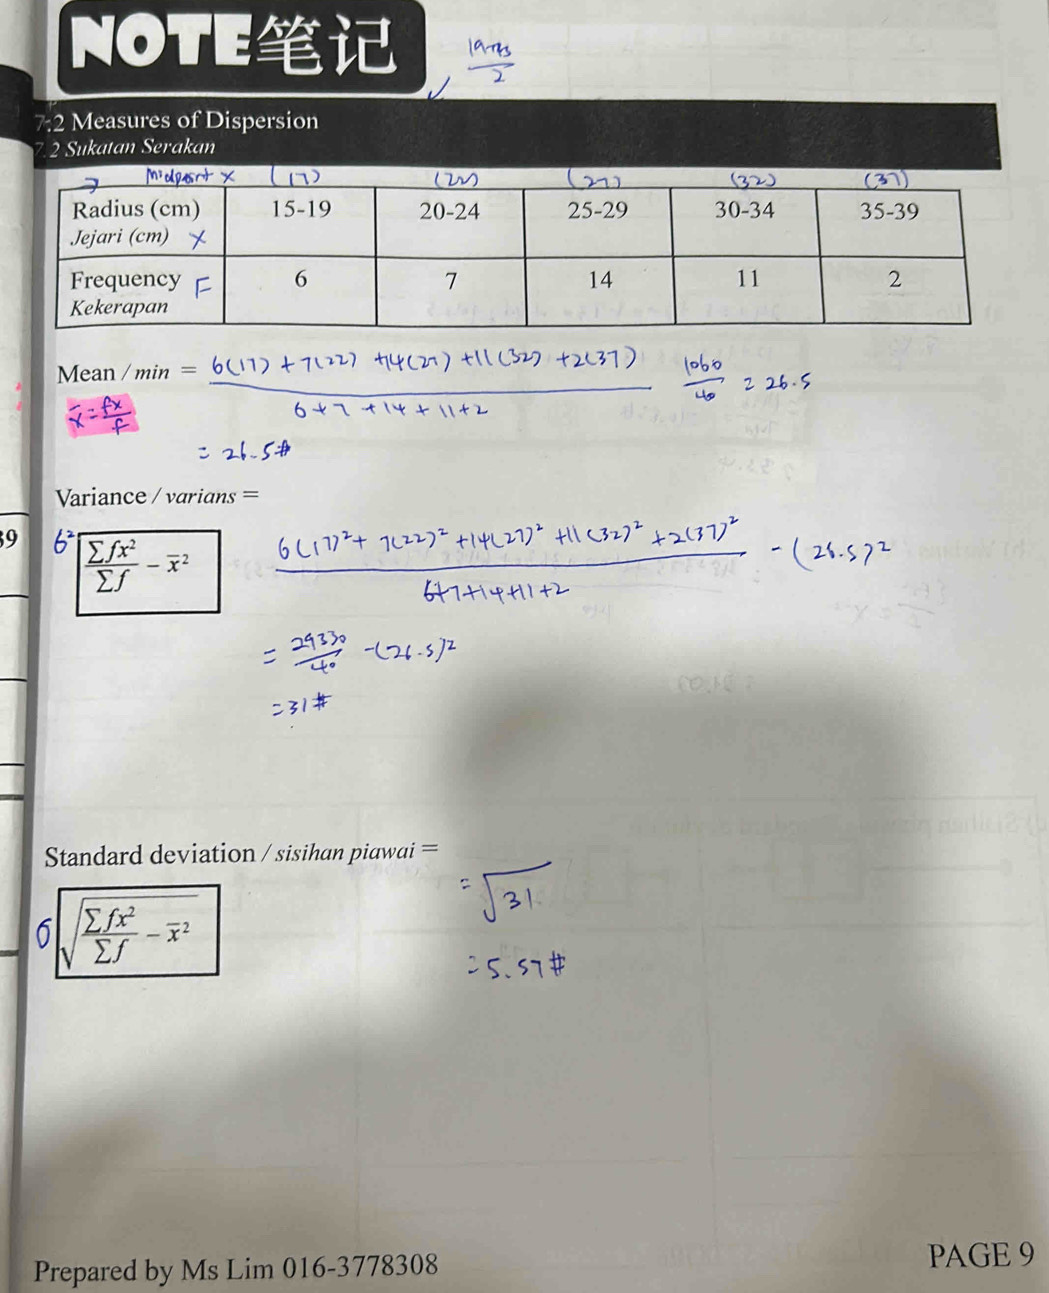 NOTE笔记
19+15
2
7.2 Measures of Dispersion
7.2 Sukatan Serakan
Midpoint x (17) (22) (27) (32) (37)
Radius (cm) 15-19 20-24 25-29 30-34 35-39
Jejari (cm) x
Frequency F 6 7 14 11 2
Kekerapan
Mean / min = 6(17) + 7(22) + 14(27) + 11(32) + 2(37) 1060
6 + 7 + 14 + 11 + 2 40 = 26.5
x̄ = fx
f
= 26.5#
Variance / varians =
39
6² ∑fx² / ∑f − x̄²
6(17)² + 7(22)² + 14(27)² + 11(32)² + 2(37)² − (26.5)²
6+7+14+11+2
= 29330 / 40 − (26.5)²
= 31#
Standard deviation / sisihan piawai =
= √31
6 √ ∑fx² / ∑f − x̄²
= 5.57#
Prepared by Ms Lim 016-3778308
PAGE 9